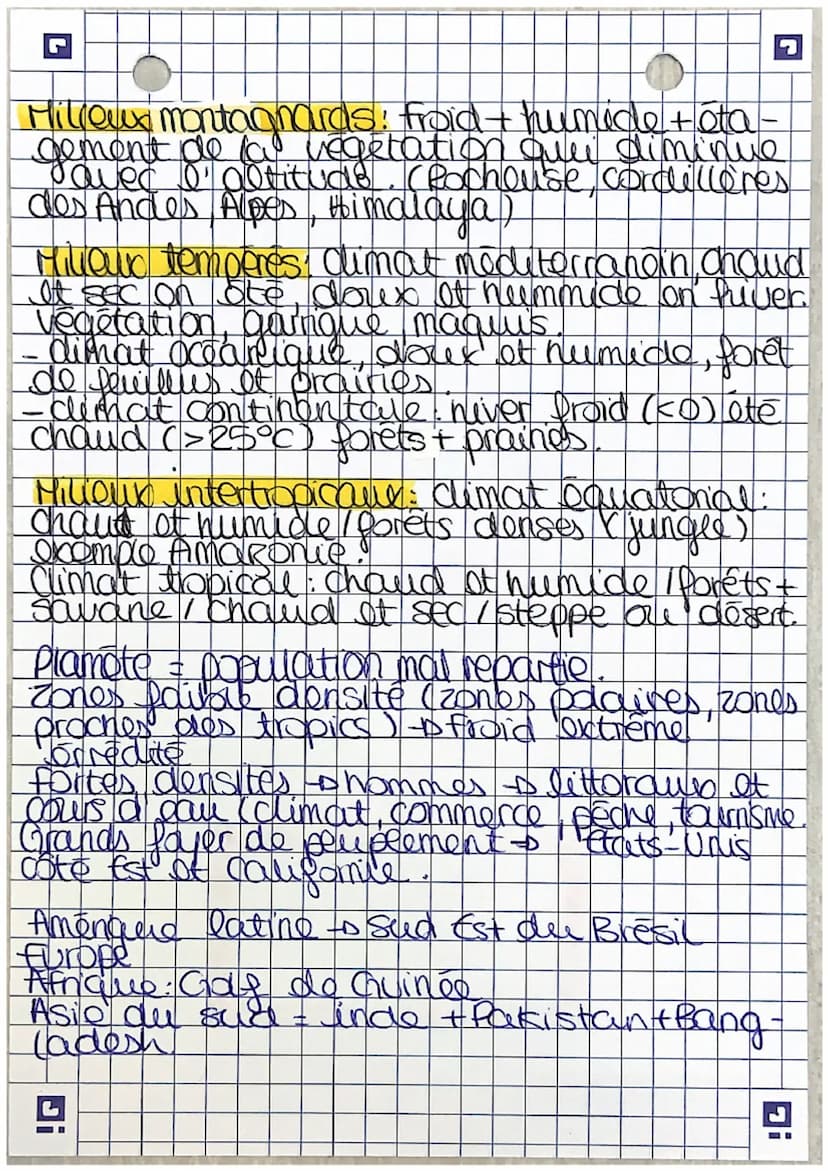 Milieux montagnards: froid + humide + éta-
gement de la végétation qui diminue
avec l'altitude. (Rocheuse, cordillères
des Andes, Alpes, Himalaya)
Milieux tempérés: climat méditerranéin, chaud
et sec en été, doux et hummide en hiver.
végétation, garrigue, maquis.
- climat océanique, doux et humide, forêt
de feuillus et prairies.
- climat continentale: hiver froid (<0) été
chaud (>25°C) forêts + prairies.
Milieux intertropicaux: climat équatorial:
chaud et humide / forêts denses (jungle)
exemple Amazonie.
Climat tropical: chaud et humide / forêts +
savane / chaud et sec / steppe ou désert.
Planète = population mal repartie.
zones faible densité (zones polaires, zones
proches des tropics) → froid extrême
arrédité
fortes densités → hommes → littoraux et
cours d'eau (climat, commerce, pêche, tourisme.
Grands foyer de peuplement → États-Unis
côté Est et Californie.
Amérique latine → Sud Est du Brésil
Europe
Afrique: Golf de Guinée
Asie du sud = inde + Pakistan + Bang-
ladesh